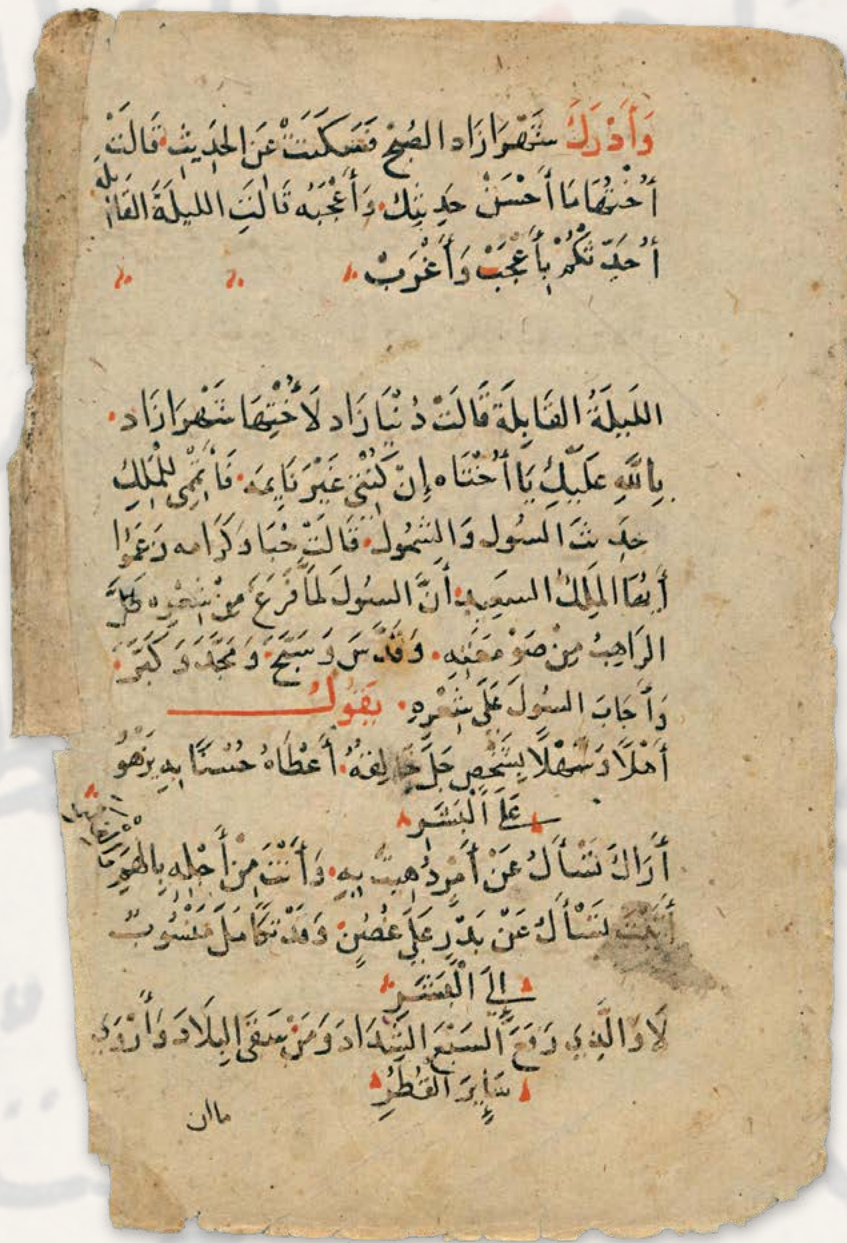 وَأَدْرَكَ شَهْرَازَاد الصُبْحَ فَسَكَتَتْ عَنِ الحَدِيثِ قَالَتْ
أُخْتُهَا مَا أَحْسَنْ حَدِيثِكِ وَأَعْجَبَه قَالَتِ الليلَةَ القَابِله
أُحَدِّثُكُمْ بِأَعْجَبْ وَأَغْرَبْ
اللَيلَةُ القَابِلَة قَالَتْ دُنْيَازَاد لَأُخْتِهَا شَهْرَازَاد
بِاللَّهِ عَلَيْكِ يَا أُخْتَاه إِنْ كُنْتِي غَيْرَ نَايِمَه فَأَتِمِّي لِلْمَلِكِ
حَدِيثَ السُول وَالشمُول قَالَتْ حُبَا وَكَرَامه زَعَمُوا
أَيُهَا المَلِكُ السَعِيد أَنَّ السُولَ لَمَّا فَرَغَ مِنْ شِعْرِه
الرَاهِبُ مِنْ صَوْمَعَتِهِ وَقَدَّسَ وَسَبَّحَ وَمَجَّدَ وَكَبَّرَ
وَأَجَابَ السُولَ عَلَى شِعْرِهِ يَقُولُ
أَهْلًا وَسَهْلًا بِشَخْصٍ جَلَّ خَالِقهُ أَعْطَاهُ حُسْنًا بِهِ يَزْهُو
عَلَى الْبَشَرِ
أَرَاكَ تَسْأَلُ عَنْ أَمْرٍ دُهِيتَ بِهِ وَأَنْتَ مِنْ أَجْلِهِ بِالهَمِّ
أَتَيْتَ تَسْأَلُ عَنْ بَدْرٍ عَلَى غُصْنٍ وَقَدْ تَكَامَلَ مَنْسُوبٌ
إِلَى الْبَشَرِ
لَا وَالَّذِي رَفَعَ السَبْعَ الشِدَادَ وَمَنْ سَقَى البِلَادَ وَأَرْوَى
سَايِرَ القُطُرِ
ماان